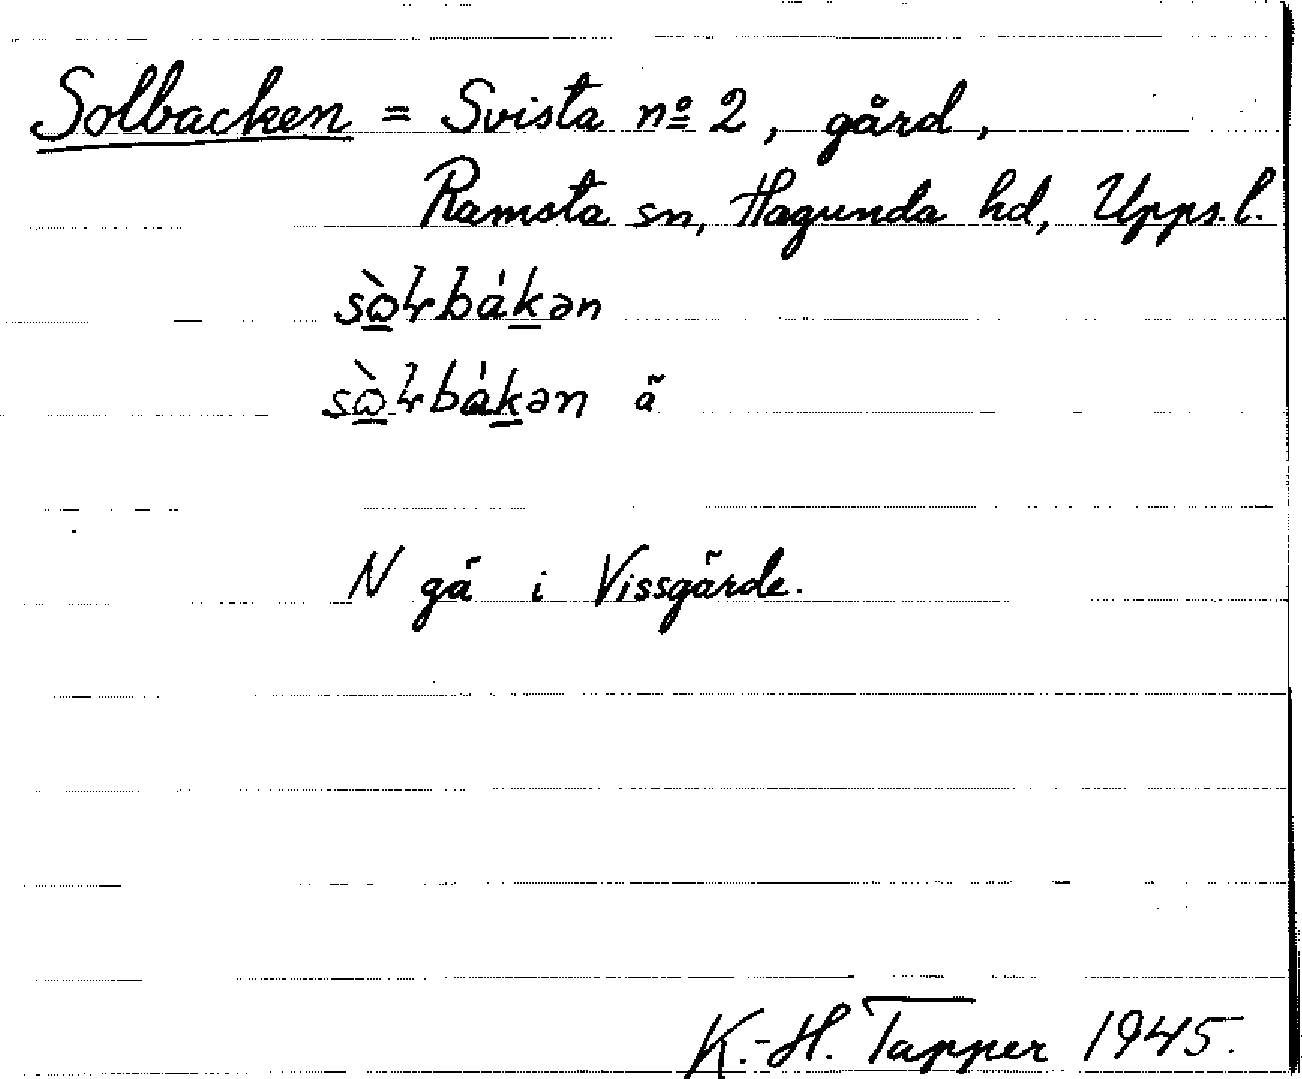 Solbacken = Svista nº 2, gård,
Ramsta sn, Hagunda hd, Upps. l.
N gå i Vissgärde.
K.-H. Tapper 1945.